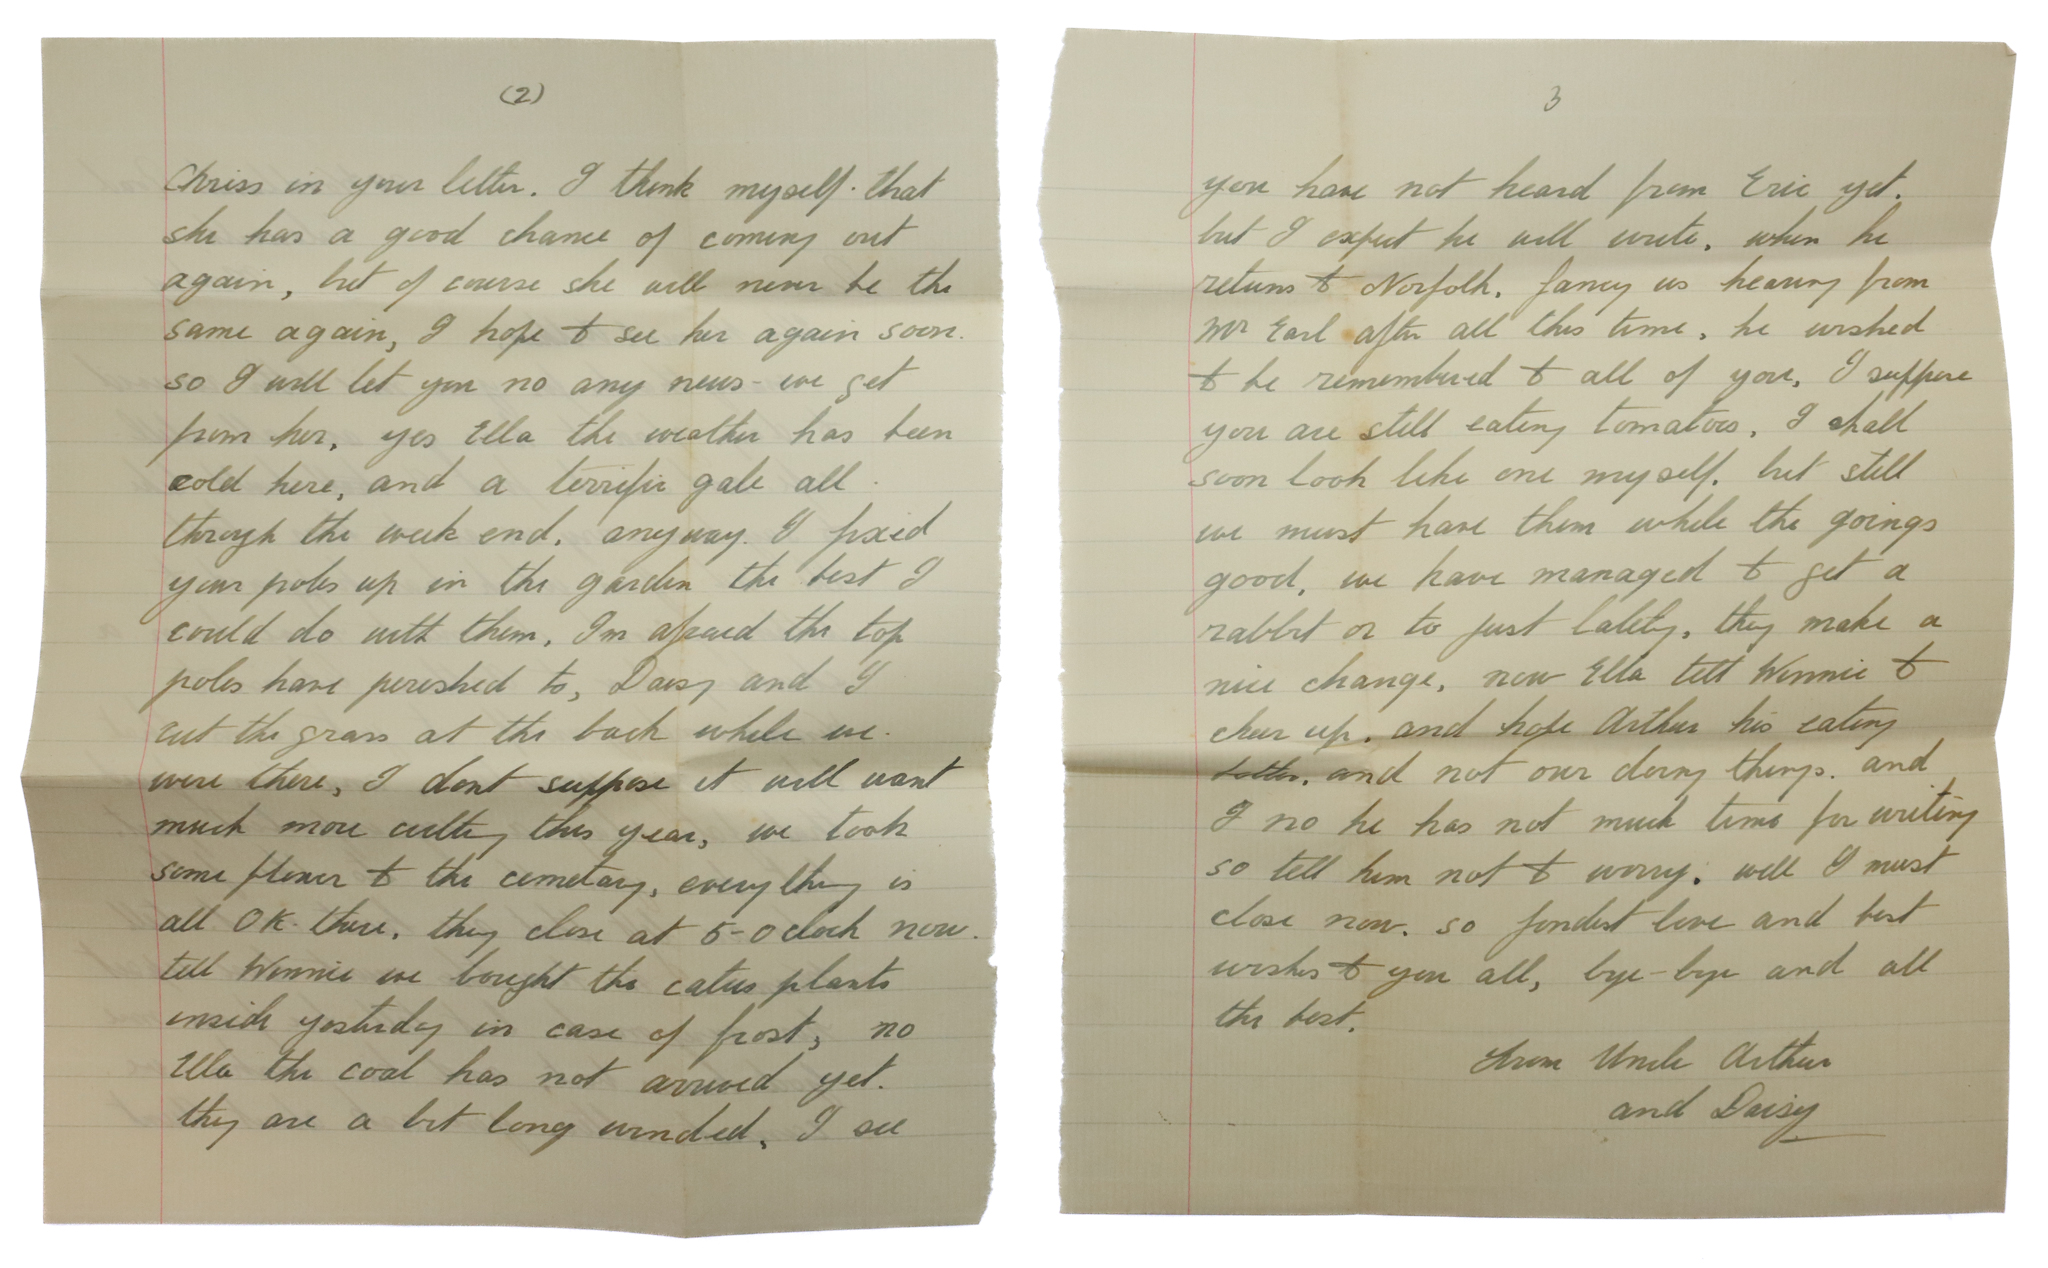 (2)
Chriss in your letter. I think myself. that
she has a good chance of coming out
again, but of course she will never be the
same again, I hope to see her again soon.
so I will let you no any news - we get
from her. yes Ella the weather has been
cold here, and a terrific gale all
through the week end. anyway. I fixed
your poles up in the garden the best I
could do with them. Im afraid the top
poles have perished to, Daisy and I
cut the grass at the back while we.
were there, I dont suppose it will want
much more cutting this year, we took
some flower to the cemetary, everything is
all OK. there. they close at 5-0 clock now.
tell Winnie we bought the catus plants
inside yesterday in case of frost, no
Ella the coal has not arrived yet.
they are a bit long winded. I see
3
you have not heard from Eric yet.
but I expect he will write. when he
returns to Norfolk. fancy us hearing from
Mr Earl after all this time. he wished
to be remembered to all of you, I suppose
you are still eating tomatoes. I shall
soon look like one myself. but still
we must have them while the goings
good, we have managed to get a
rabbit or to just lately, they make a
nice change. now Ella tell Winnie to
cheer up. and hope Arthur his eating
better. and not our doing things. and
I no he has not much time for writing
so tell him not to worry. well I must
close now. so fondest love and best
wishes to you all, bye-bye and all
the best.
from Uncle Arthur
and Daisy